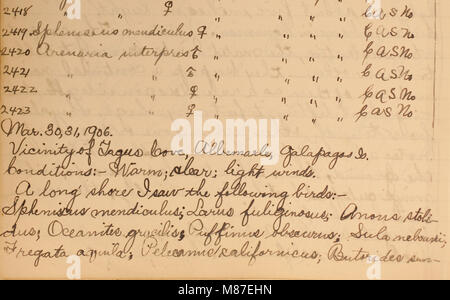 2418 " " ♀ " " C A S No
2419 Spheniscus mendiculus ♀ " " C A S No
2420 Arenaria interpres " " C A S No
2421 " " " " C A S No
2422 " " ♀ " " C A S No
2423 " " ♀ " " C A S No
Mar. 30, 31, 1906.
Vicinity of Tagus Cove, Albemarle, Galapagos Is.
Conditions:- Warm; clear; light winds.
A long shore I saw the following birds:-
Spheniscus mendiculus; Larus fuliginosus; Anous stoli-
dus; Oceanites gracilis; Puffinus obscurus; Sula nebouxi;
Fregata aquila; Pelecanus californicus; Butorides sun-
alamy
M87EHN